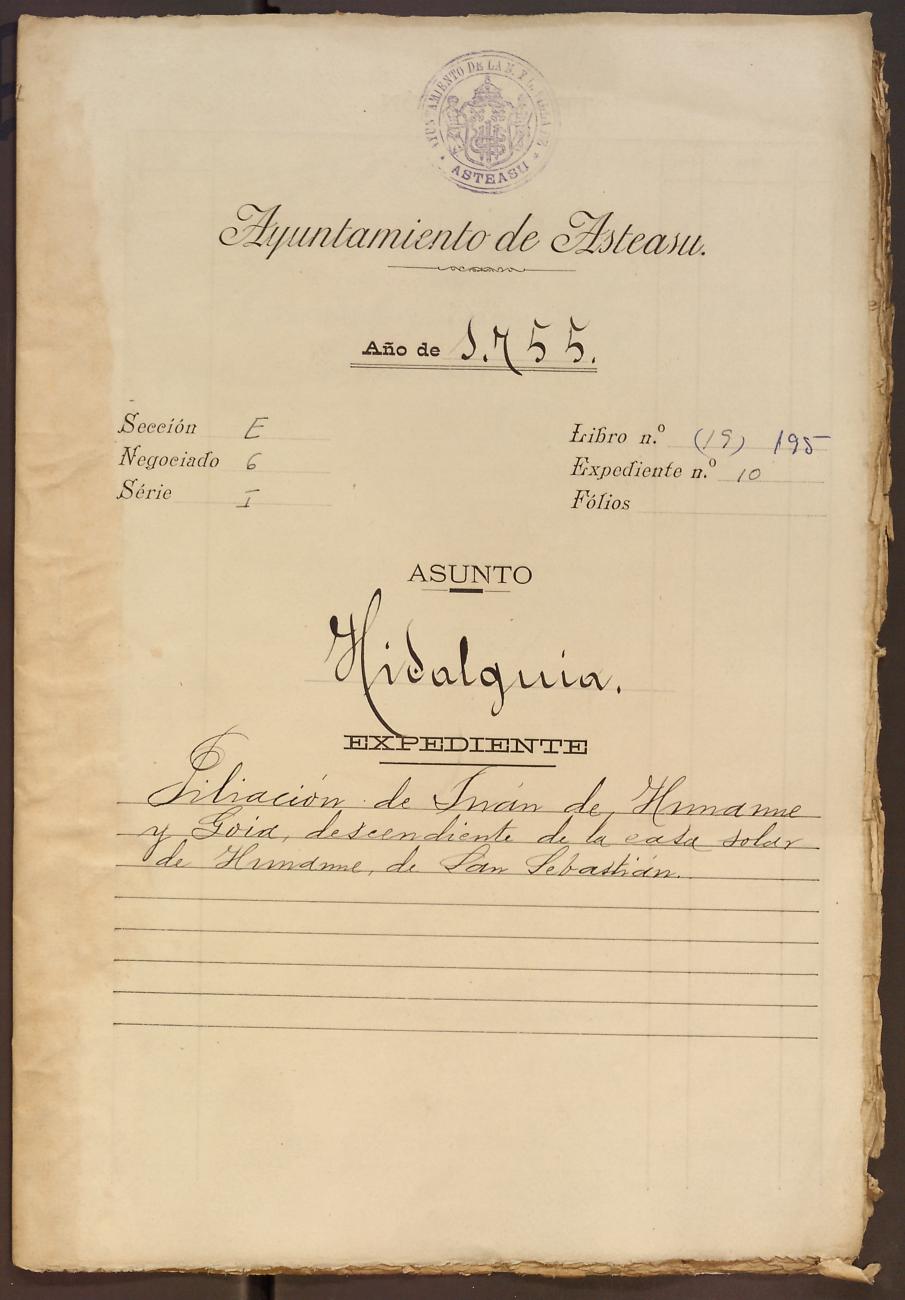 AYUNTAMIENTO DE LA N. Y L. VILLA DE
ASTEASU
Ayuntamiento de Asteasu.
Año de 1.755.
Sección E
Libro n.º (19) 195
Negociado 6
Expediente n.º 10
Série I
Fólios
ASUNTO
Hidalguia.
EXPEDIENTE
Filiación de Juan de
y Goia, descendiente de la casa solar
de de San Sebastián.